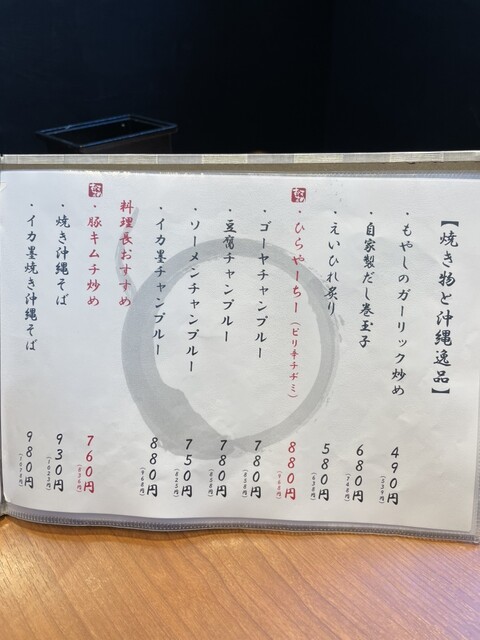 【焼き物と沖縄逸品】
・もやしのガーリック炒め 490円 (539円)
・自家製だし巻玉子 680円 (748円)
・えいひれ炙り 580円 (638円)
・ひらやーちー(ピリ辛チヂミ) 880円 (968円)
・ゴーヤチャンプルー 780円 (858円)
・豆腐チャンプルー 780円 (858円)
・ソーメンチャンプルー 750円 (825円)
・イカ墨チャンプルー 880円 (968円)
料理長おすすめ
・豚キムチ炒め 760円 (836円)
・焼き沖縄そば 930円 (1023円)
・イカ墨焼き沖縄そば 980円 (1078円)